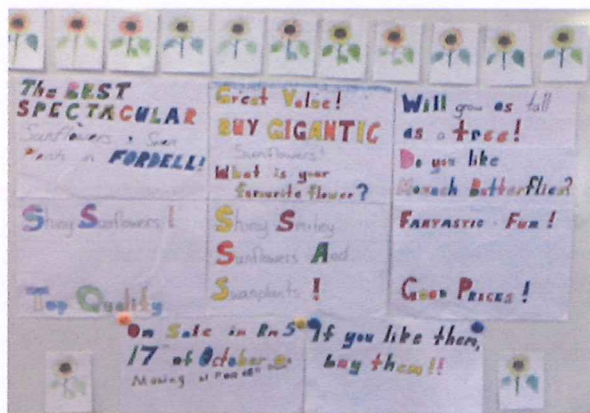 The BEST
SPECTACULAR
Sunflowers & Swan
Plants in FORDELL!
Great Value!
BUY GIGANTIC
Sunflowers!
What is your
favourite flower?
Will grow as tall
as a tree!
Do you like
Monach Butterflies?
Shiny Sunflowers!
Top Quality
Shiny Smiley
Sunflowers And
Swanplants!
FANTASTIC FUN!
GOOD PRICES!
On Sale in Rm 5
17th of October
If you like them,
buy them!!